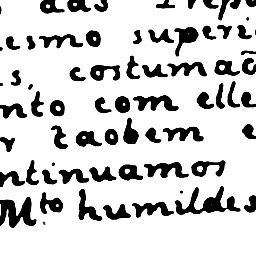 das
esmo superi
s, costumaõ
nto com elle
r taobem e
ntinuamos
M.to humildes